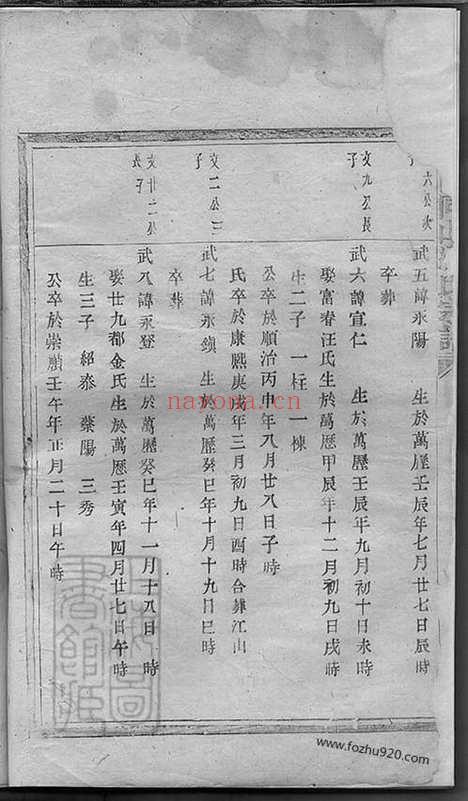 六公次
子
武五諱永陽　生於萬歷壬辰年七月廿七日辰時
卒葬
文九公長
子
武六諱宣仁　生於萬歷壬辰年九月初十日未時
娶富春汪氏生於萬歷甲辰年十二月初九日戌時
生二子　一枉　一棟
公卒於順治丙申年八月廿八日子時
氏卒於康熙庚戌年三月初九日酉時合葬江山
文二公三
子
武七諱永鎮　生於萬歷癸巳年十月十九日巳時
卒葬
文廿二公
長子
武八諱永登　生於萬歷癸巳年十一月十八日　時
娶廿九都金氏生於萬歷壬寅年四月廿七日午時
生三子　紹泰　葉陽　三秀
公卒於崇禎壬午年正月二十日午時
nayona.cn
www.fozhu920.com